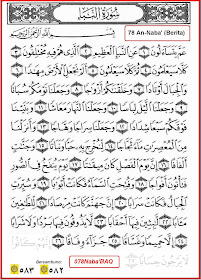 سُورَةُ النَّبَإِ
78 An-Naba' (Berita)
بِسْمِ اللَّهِ الرَّحْمَٰنِ الرَّحِيمِ
عَمَّ يَتَسَاءَلُونَ ١ عَنِ النَّبَإِ الْعَظِيمِ ٢ الَّذِي هُمْ فِيهِ مُخْتَلِفُونَ ٣
كَلَّا سَيَعْلَمُونَ ٤ ثُمَّ كَلَّا سَيَعْلَمُونَ ٥ أَلَمْ نَجْعَلِ الْأَرْضَ مِهَادًا ٦
وَالْجِبَالَ أَوْتَادًا ٧ وَخَلَقْنَاكُمْ أَزْوَاجًا ٨ وَجَعَلْنَا نَوْمَكُمْ سُبَاتًا
٩ وَجَعَلْنَا اللَّيْلَ لِبَاسًا ١٠ وَجَعَلْنَا النَّهَارَ مَعَاشًا ١١ وَبَنَيْنَا
فَوْقَكُمْ سَبْعًا شِدَادًا ١٢ وَجَعَلْنَا سِرَاجًا وَهَّاجًا ١٣ وَأَنْزَلْنَا
مِنَ الْمُعْصِرَاتِ مَاءً ثَجَّاجًا ١٤ لِنُخْرِجَ بِهِ حَبًّا وَنَبَاتًا ١٥ وَجَنَّاتٍ
أَلْفَافًا ١٦ إِنَّ يَوْمَ الْفَصْلِ كَانَ مِيقَاتًا ١٧ يَوْمَ يُنْفَخُ فِي الصُّورِ
فَتَأْتُونَ أَفْوَاجًا ١٨ وَفُتِحَتِ السَّمَاءُ فَكَانَتْ أَبْوَابًا ١٩ وَسُيِّرَتِ
الْجِبَالُ فَكَانَتْ سَرَابًا ٢٠ إِنَّ جَهَنَّمَ كَانَتْ مِرْصَادًا ٢١ لِلطَّاغِينَ
مَآبًا ٢٢ لَابِثِينَ فِيهَا أَحْقَابًا ٢٣ لَا يَذُوقُونَ فِيهَا بَرْدًا وَلَا شَرَابًا
٢٤ إِلَّا حَمِيمًا وَغَسَّاقًا ٢٥ جَزَاءً وِفَاقًا ٢٦
Bersambung:
٥٨٣ ٥٨٢
078Naba'BAQ